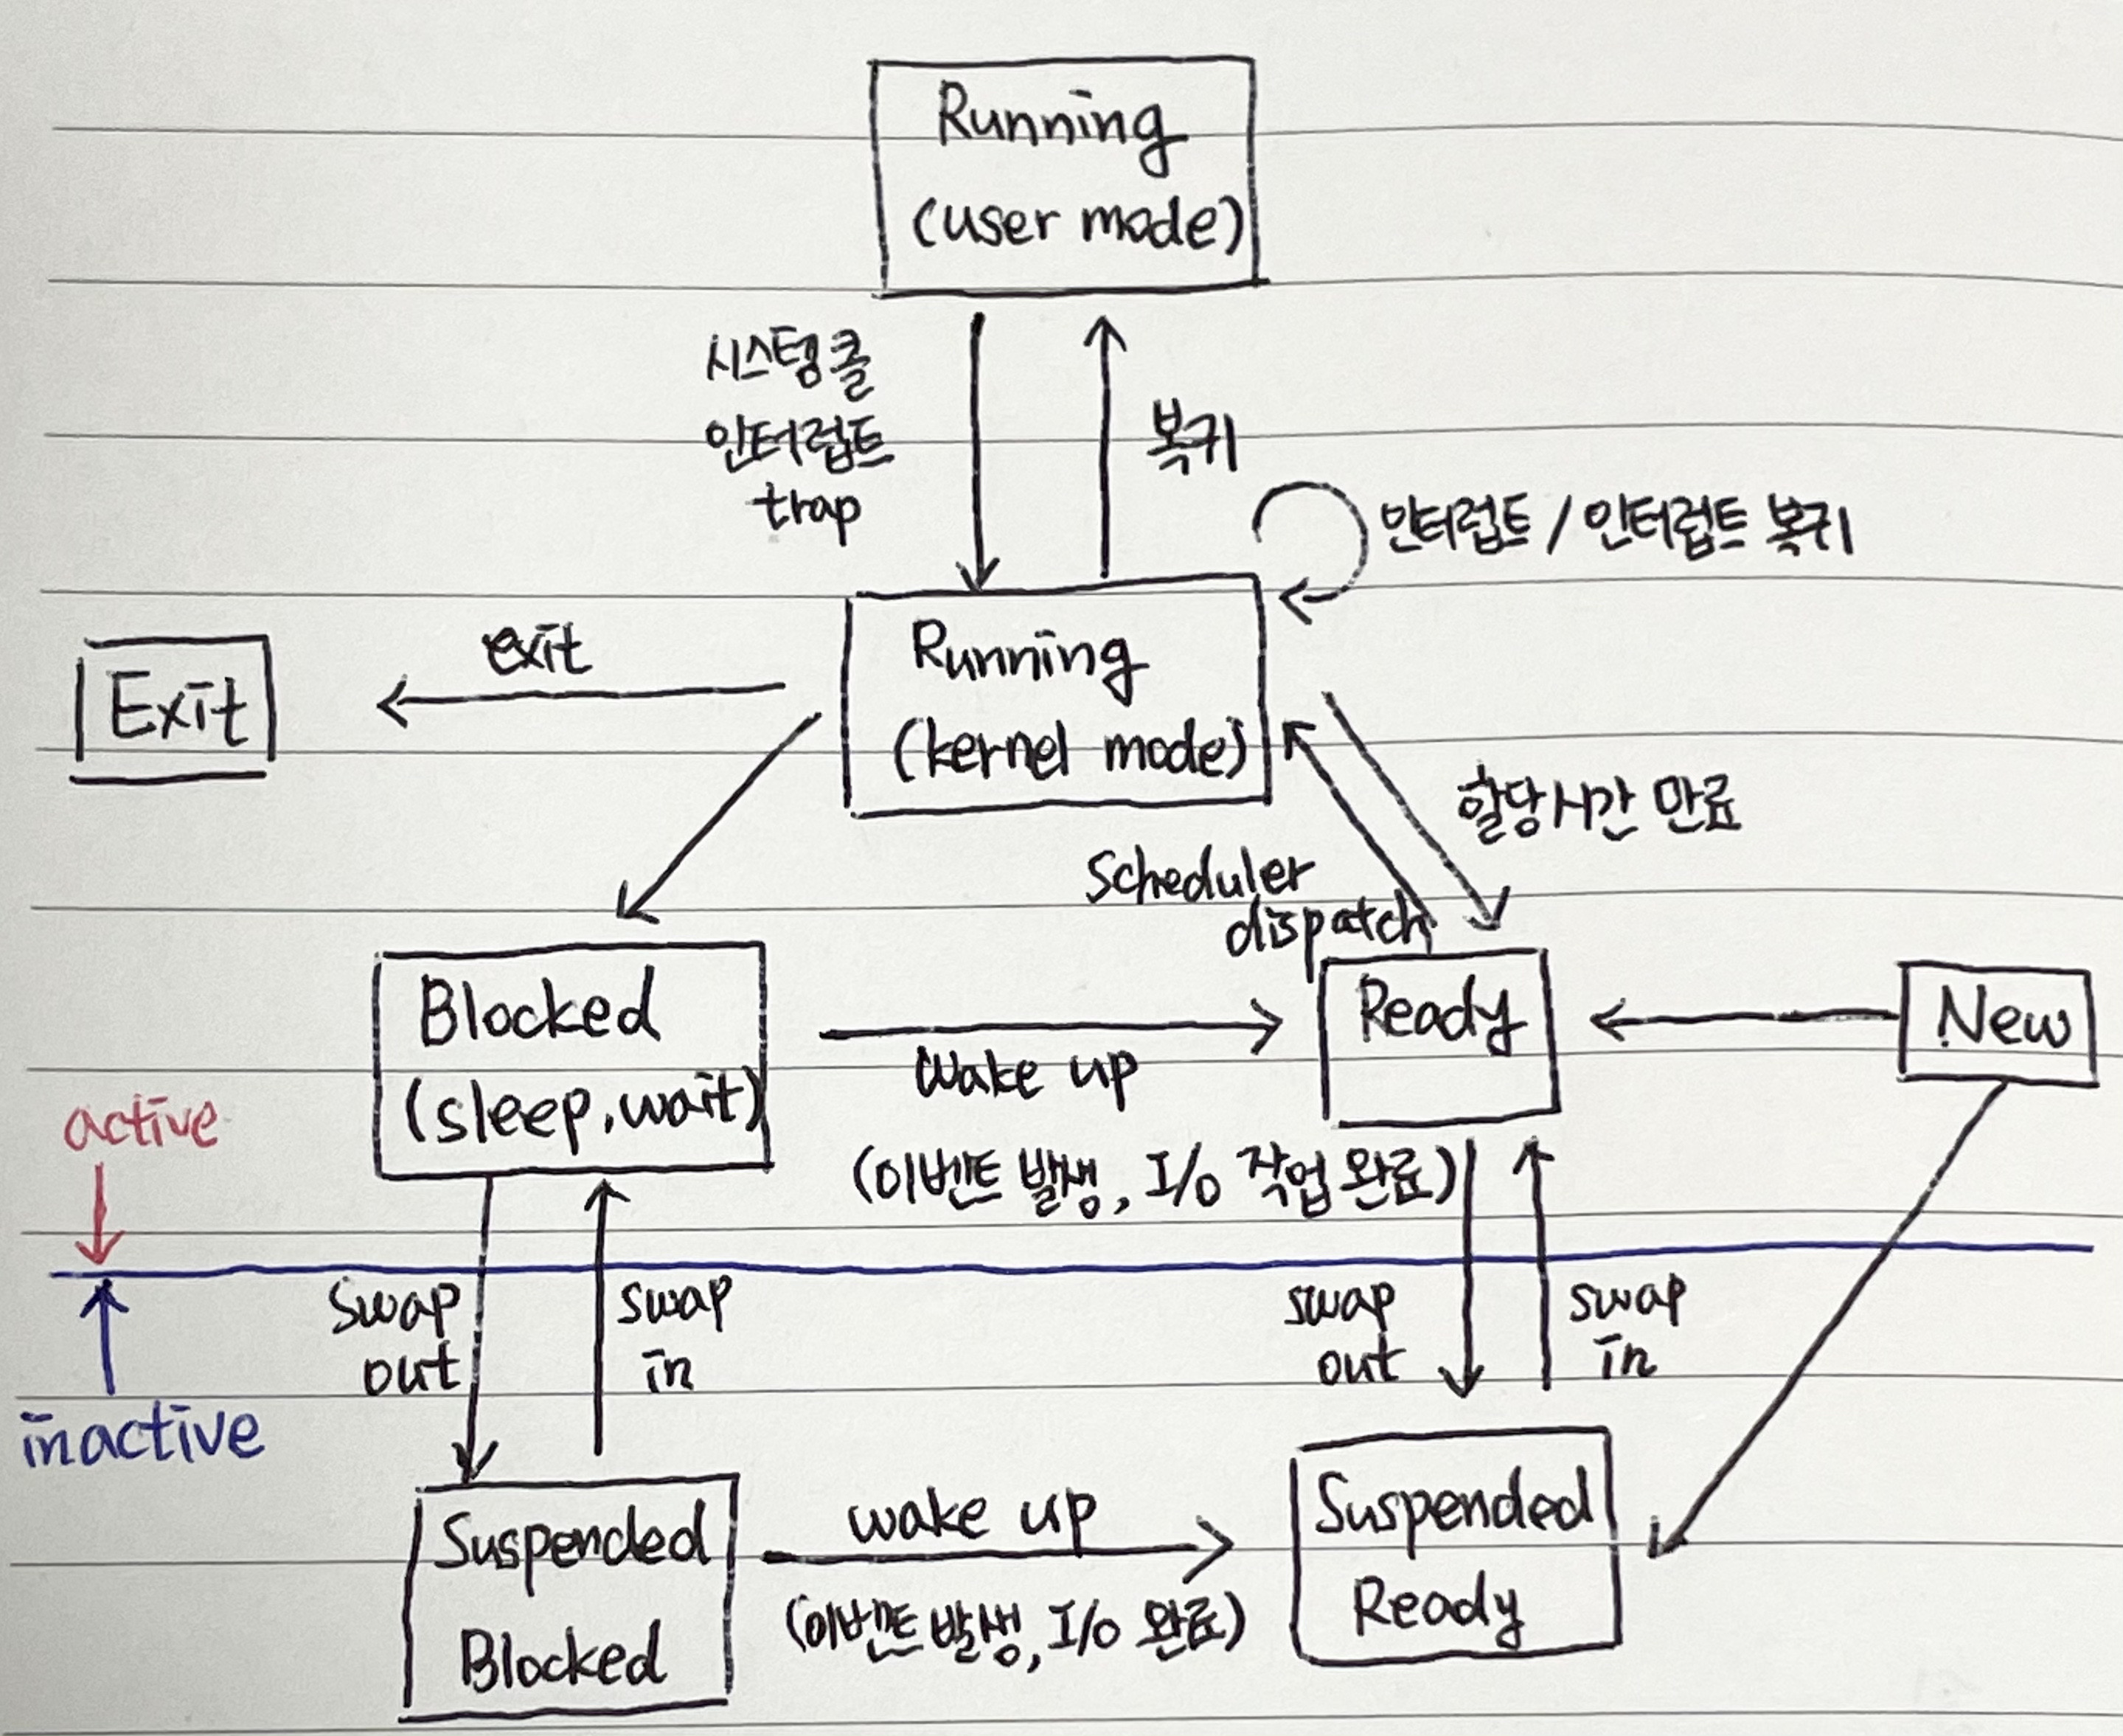 Running
(user mode)
시스템콜
인터럽트
trap
복귀
인터럽트 / 인터럽트 복귀
Exit
exit
Running
(kernel mode)
할당시간 만료
Scheduler
dispatch
Blocked
(sleep, wait)
wake up
(이벤트 발생, I/O 작업 완료)
Ready
New
active
inactive
swap
out
swap
in
swap
out
swap
in
Suspended
Blocked
wake up
(이벤트 발생, I/O 완료)
Suspended
Ready